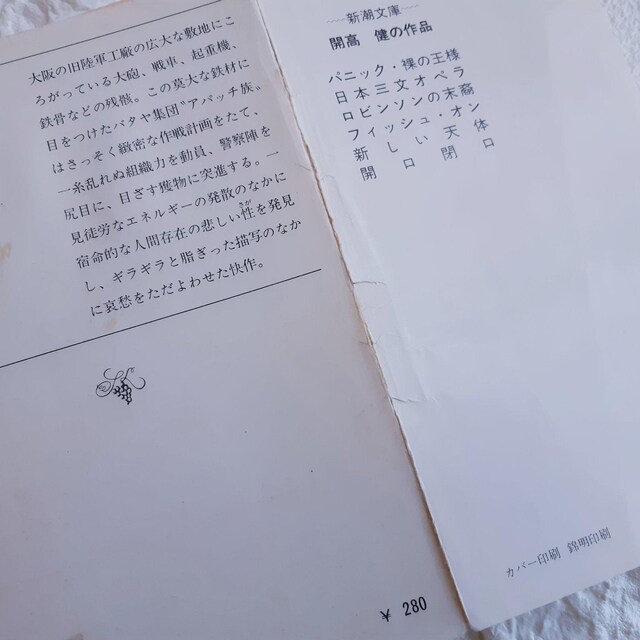 大阪の旧陸軍工廠の広大な敷地にこ
ろがっている大砲、戦車、起重機、
鉄骨などの残骸。この莫大な鉄材に
目をつけたバタヤ集団“アパッチ族”
はさっそく緻密な作戦計画をたて、
一糸乱れぬ組織力を動員、警察陣を
尻目に、目ざす獲物に突進する。一
見徒労なエネルギーの発散のなかに
宿命的な人間存在の悲しい性を発見
さが
し、ギラギラと脂ぎった描写のなか
に哀愁をただよわせた快作。
SK
¥ 280
新潮文庫
開高 健の作品
パニック・裸の王様
日本三文オペラ
ロビンソンの末裔
フィッシュ・オン
新しい天体
開口閉口
カバー印刷 錦明印刷